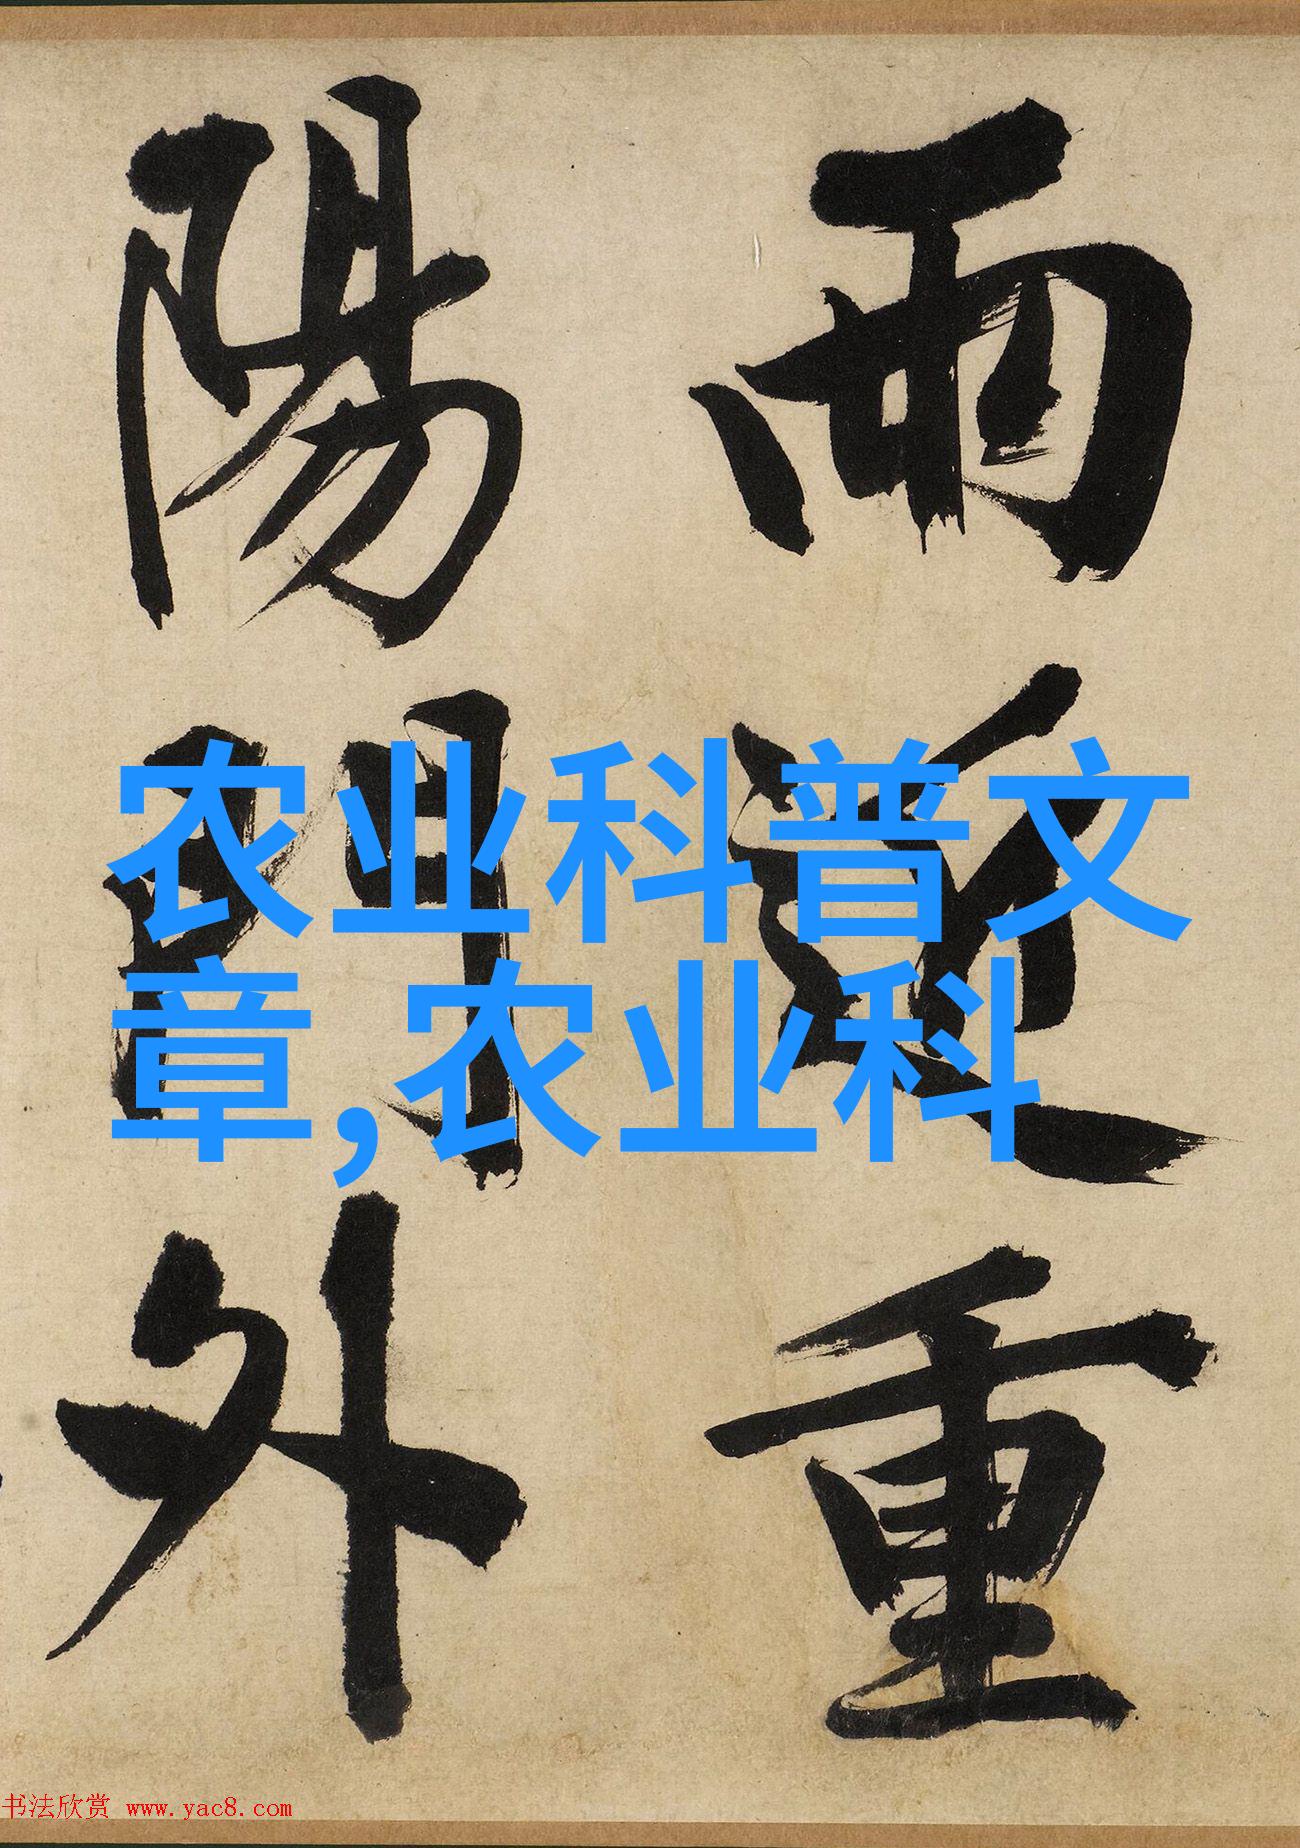 雨近重
陽門外
农业科普文
章,农业科
书法欣赏 www.yac8.com